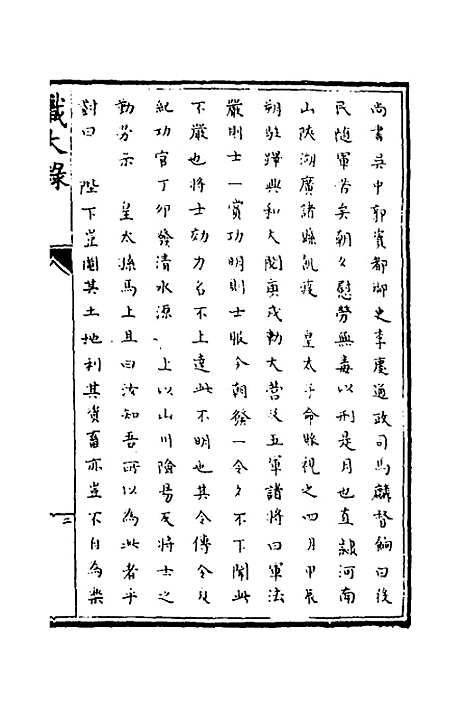 尚書吳中郭資都御史李慶通政司馬麟督餉曰役
民隨軍苦矣朝夕慰勞無毒以刑是月也直隸河南
山陝湖廣諸縣飢疫　皇太子命賑視之四月甲辰
朔駐蹕興和大閱庚戌勅大營及五軍諸將曰軍法
嚴則士一賞功明則士服今朝發一令夕不下聞此
不嚴也將士効力名不上達此不明也其令傳令及
紀功官丁卯發清水源　上以山川險易及將士之
勤勞示　皇太孫馬上且曰汝知吾所以為此者乎
對曰　陛下豈圖其土地利其貨畜亦豈不自為樂
識大錄
二